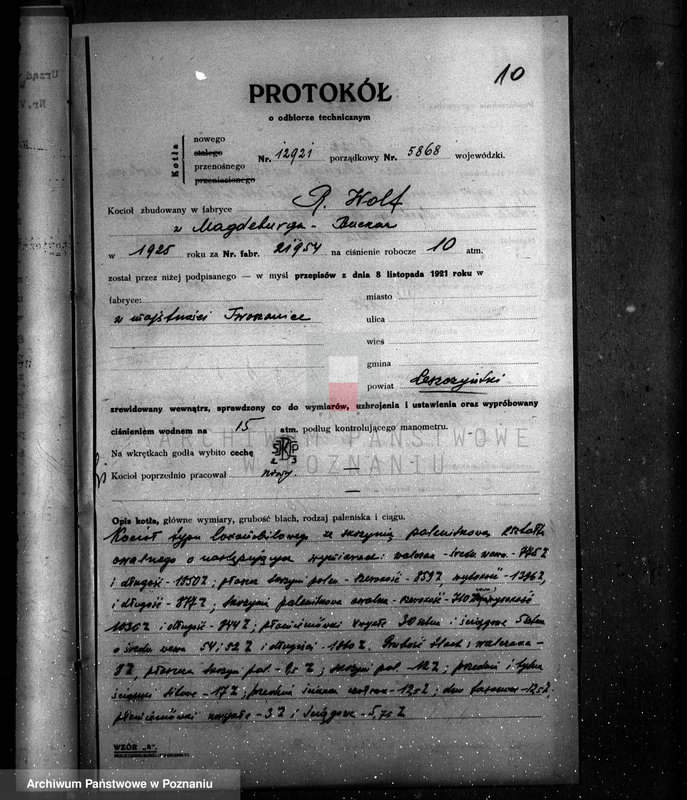 10
PROTOKÓŁ
o odbiorze technicznym
Kotła
nowego
stałego
przenośnego
przeniesionego
Nr. 12921 porządkowy Nr. 5868 wojewódzki.
Kocioł zbudowany w fabryce R. Wolf
z Magdeburga - Buckau
w 1925 roku za Nr. fabr. 21954 na ciśnienie robocze 10 atm.
został przez niżej podpisanego — w myśl przepisów z dnia 8 listopada 1921 roku w
fabryce:
miasto
z majętności
ulica
wieś
gmina
powiat Leszczyński
zrewidowany wewnątrz, sprawdzony co do wymiarów, uzbrojenia i ustawienia oraz wypróbowany
ciśnieniem wodnem na 15 atm. podług kontrolującego manometru.
ARCHIWUM PAŃSTWOWE
W POZNANIU
Na wkrętkach godła wybito cechę
2 3
Kocioł poprzednio pracował nowy. —
—
Opis kotła, główne wymiary, grubość blach, rodzaj paleniska i ciągu.
Kocioł typu lokomobilowego ze skrzynią paleniskową kształtu
owalnego o następujących wymiarach: walczak - średn. wewn. -
i długość - 1850 ; płaszcz skrzyni palen. - szerokość - 859 , wysokość - 1396 ,
i długość - 877 ; skrzynia paleniskowa owalna - szerokość - 710 wysokość
1036 i długość - 844 ; płomieniówki zwykłe 30 sztuk i ściągowe 5 sztuk
o średn. wewn. 54; 52 i długości - 1860 . Grubość blach: walczaka -
8 , płaszcza skrzyni pal. - 9,5 ; skrzyni pal. - 12 ; przednia i tylna
ściana sitowa - 17 ; przednia ściana - 12,5 ; dno - 12,5 ,
płomieniówki zwykłe - 3 i ściągowe - 5,75
WZÓR „A".
Archiwum Państwowe w Poznaniu